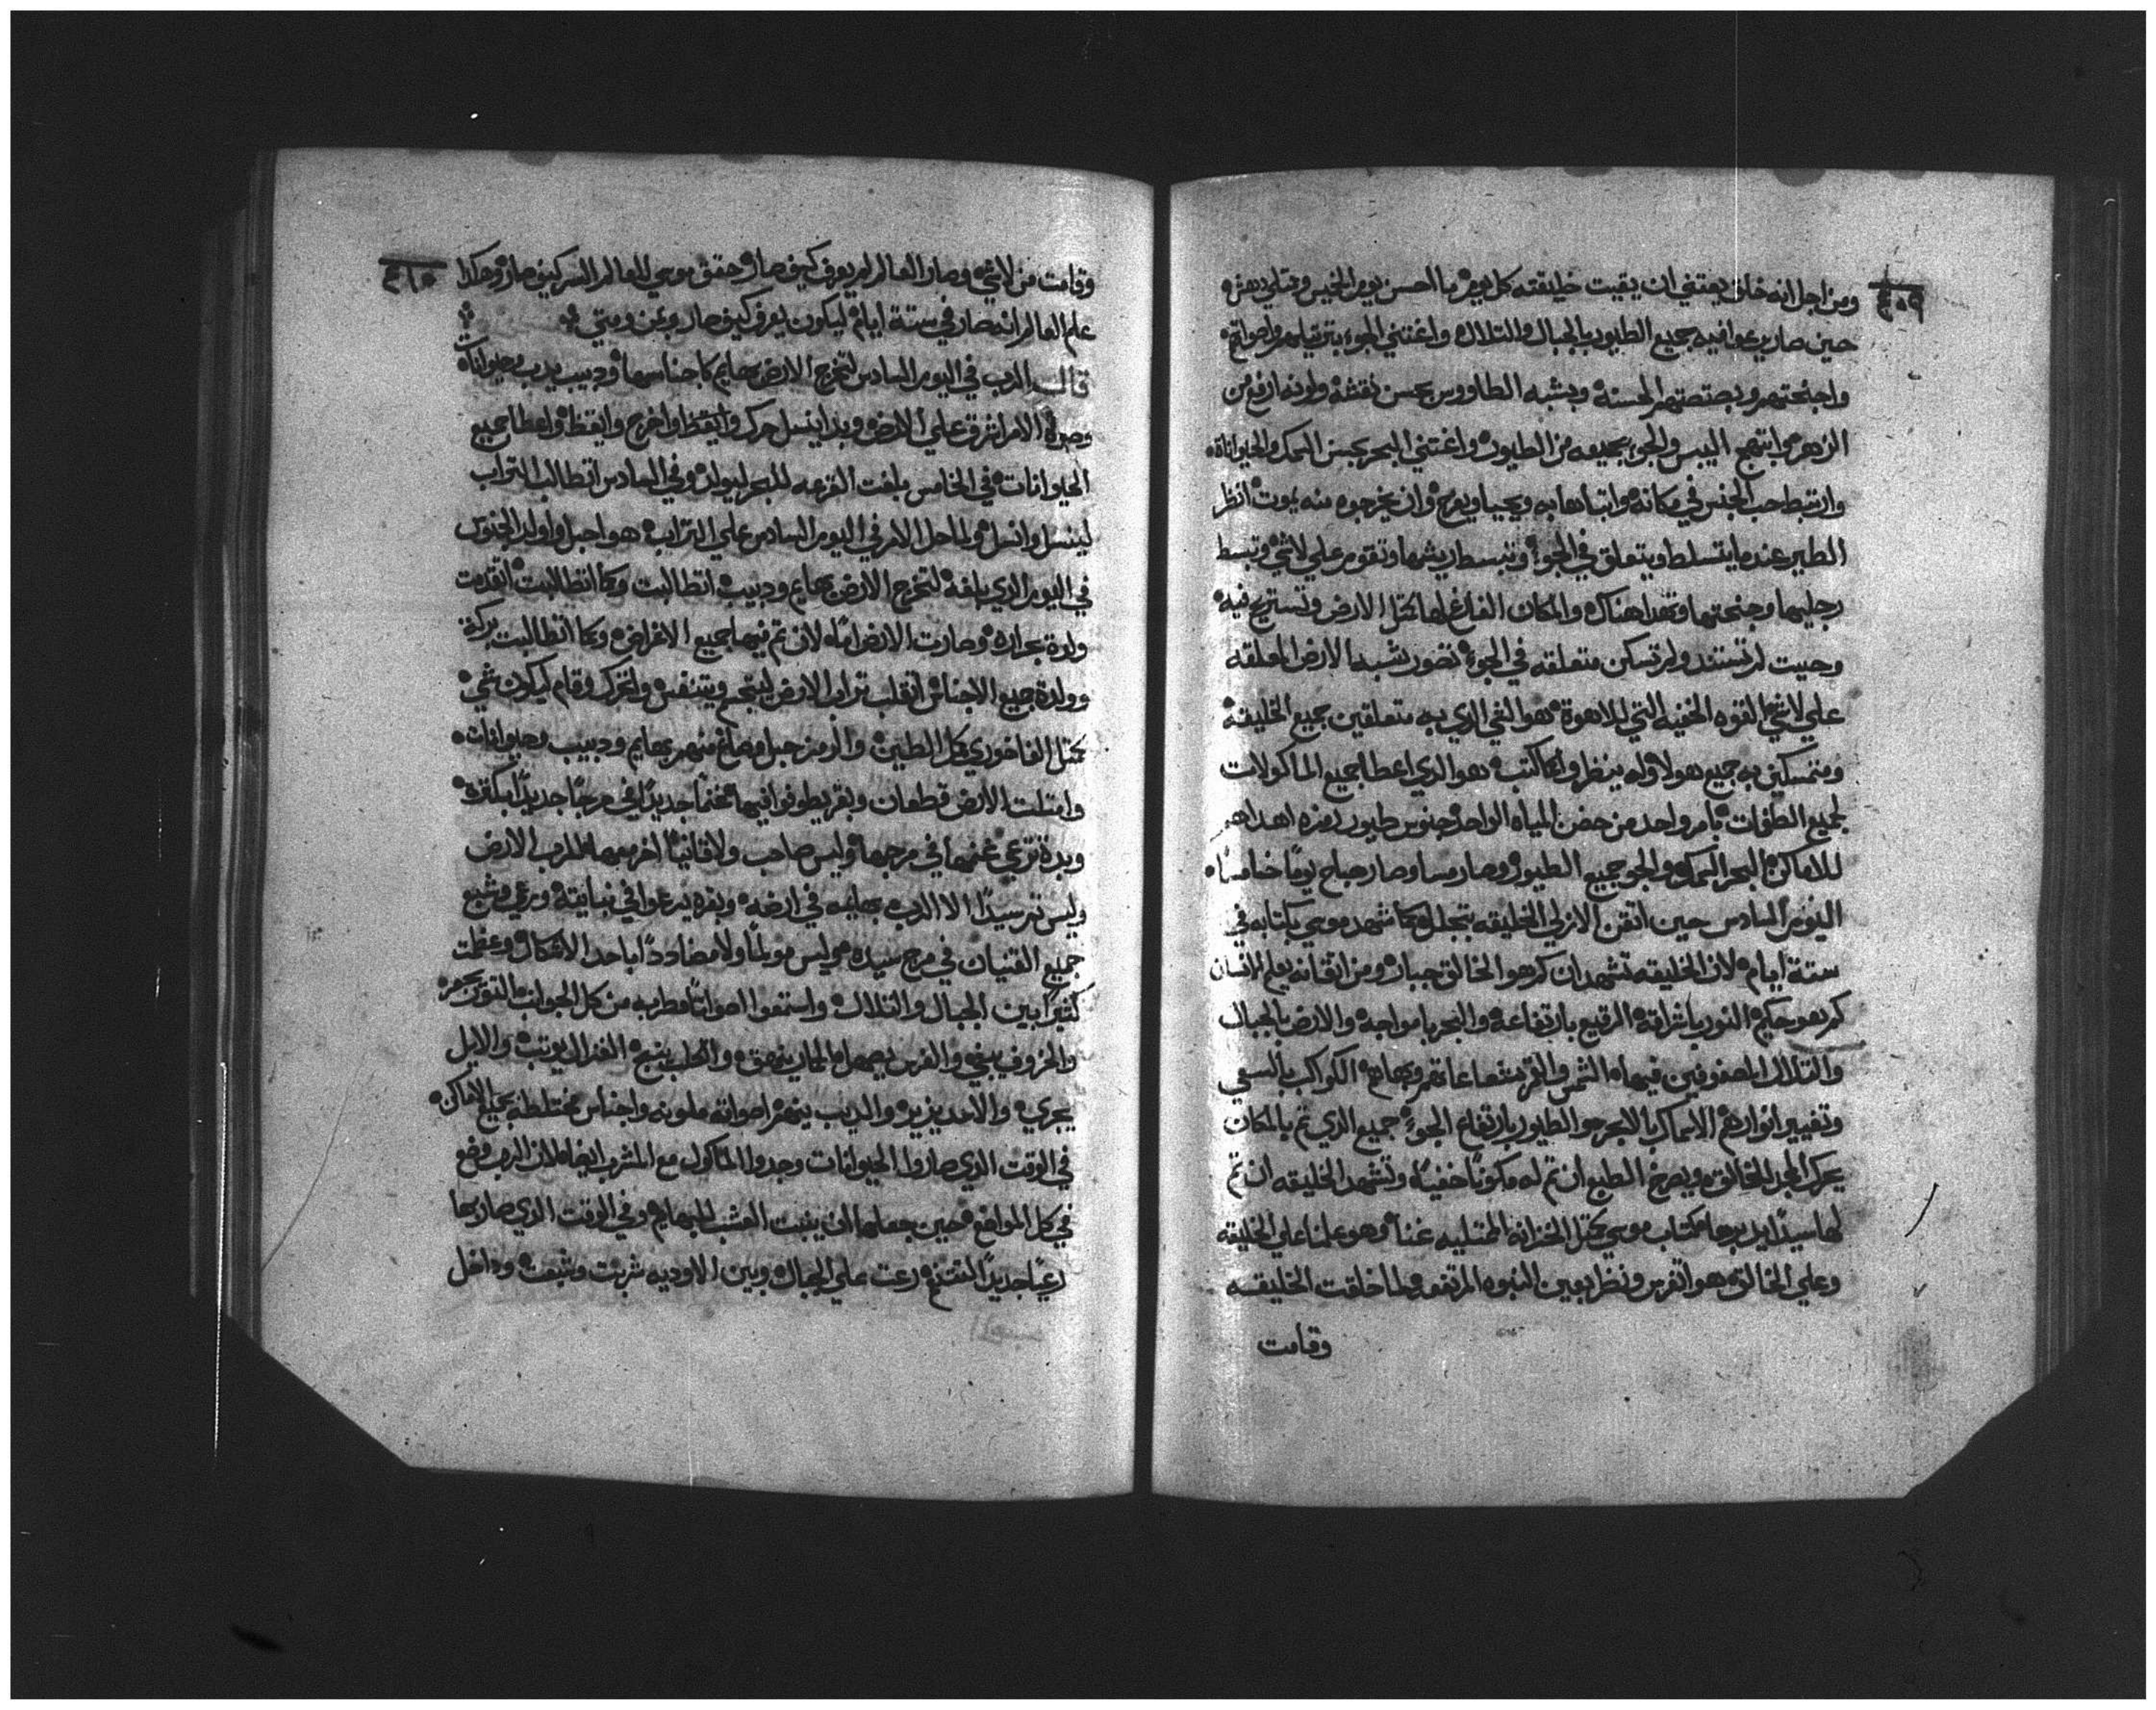 ومن اجل انه خالق يعتني ان يقيت خليقته كل يوم ما احسن يوم الخميس وممتلي دهش
حين صار يدعوا فيه جميع الطيور بالجبال والتلال واغتني الجو بترتيلهم واصواتهم
واجنحتهم وبصتهم الحسنه ويشبه الطاووس بحسن نقشه ولونه ارفع من
الزهر وابتهج اليبس والجو بجميعه من الطيور واغتني البحر بجنس السمك والحيواناة
وارتبط حب الجنس في مكانه وابتدا بها به ويحيا ويفرح وان يخرجوه منه يموت انظر
الطير عندما يتسلط ويتعلق في الجو وتبسط ريشها وتقوم علي لاشي وتبسط
رجليها وجنحتيها وتهدا هناك والمكان الفارغ لها كمثل الارض وتستريح فيه
وحيت لم تستند ولم تسكن متعلقه في الجو تصور تشبه الارض المعلقه
علي لاشي القوه الخفيه التي للاهوة هو الشي الذي به متعلقين جميع الخليقة
ومتمسكين به جميع هولا وله ينظروا كما كتب هو الذي اعطا جميع الماكولات
لجميع الطغمات بامر واحد من حضن المياه الواحد جنوس طيور رمزه اهداهم
للاماكن البحر السمك والجو جميع الطيور وصار مسا وصار صباح يومًا خامسًا
اليوم السادس حين اتقن الازلي الخليقه بتجلل كما شهد موسي بكتابه في
ستة ايام لان الخليقه تشهد ان كم هو الخالق جبار ومن اتقانه يعلم الانسان
كم هو حكيم النور باشراقه الرقيع بارتفاعه والبحر بامواجه والارض بالجبال
والتلال المصفوفين فيها الشمس والقمر بشعاعاتهم وبهاهم الكواكب بالسعي
وتغيير انوارهم الاسماك بالابحر والطيور بارتفاع الجو جميع الذي تم بالمكان
يحرك المجد للخالق ويصرخ الطبع ان تم له مكونًا خفيًا وتشهد الخليقه ان تم
لها سيدًا يدبرها كتاب موسي كمثل الخزانه الممتليه غنا وهو علمنا علي الخليقه
وعلي الخالق هو اتفرس ونظر بعين النبوه المرتفعه لما خلقت الخليقه
وقامت
وقامت من لاشي وصار العالم لم يعرف كيف صار وحقق موسي للعالم السر كيف صار وهكذا
علم العالم انه صار في ستة ايام ليكون يعرف كيف صار وبمن ومتي
قال الرب في اليوم السادس لتخرج الارض بهايم كاجناسها ودبيب يدب وحيواناة
وصوة الامر اشرق علي الارض وبدا ينسل حرك وايقظ واخرج وايقظ واعطا جميع
الحيوانات في الخامس بلغت القرعه للبحر ليولد وفي السادس اتطالب التراب
لينسل وانسل ولما حل الامر في اليوم السادس علي التراب هو احبل واولد الجنوس
في اليوم الذي بلغه لتخرج الارض بهايم ودبيب اتطالبت وكما اتطالبت اتقدمت
ولدة بحراره وصارت الارض امًا لان تم فيها جميع الاغراض وكما اتطالبت بركة
وولدة جميع الاجناس انقلب تراب الارض ليتجم ويتنفس ولتحرك وقام ليكون شي
كمثل الفاخوري كل الطين والرمز جبل وصاغ منهم بهايم ودبيب وحيوانات
وامتلت الارض قطعان وبقر يطوفوا فيها غنمًا جديدًا في مرجًا جديدًا مبكره
وبدة ترعي غنمها في مرجها وليس صاحب ولا قانيًا اخر معها للرب الارض
وليس تم سيدًا الا الرب بهايمه في ارضه وبقره يدعوا في نباتته ويرعي وشبع
جميع القنيان في مرج سيده وليس مولمًا ولا مضاددًا باحد الاشكال وعظمت
كثيرًا بين الجبال والتلال واستمعوا اصواتًا مطربه من كل الجوانب الثور
والخروف يبغي والفرس يصهل الحمار ينهق والكلب ينبح الغزال يوتب والايل
يجري والاسد يزير والديب ينهم اصواته ملونه واجناس مختلطه بجميع الاماكن
في الوقت الذي صاروا الحيوانات وجدوا الماكول مع المشرب ايضا لان الرب وضع
في كل المواضع حين جعلها ان ينبت العشب للبهايم وفي الوقت الذي صار بها
رعيًا جديدًا رعت علي الجبال وبين الاوديه شربت وشبعت وداخل